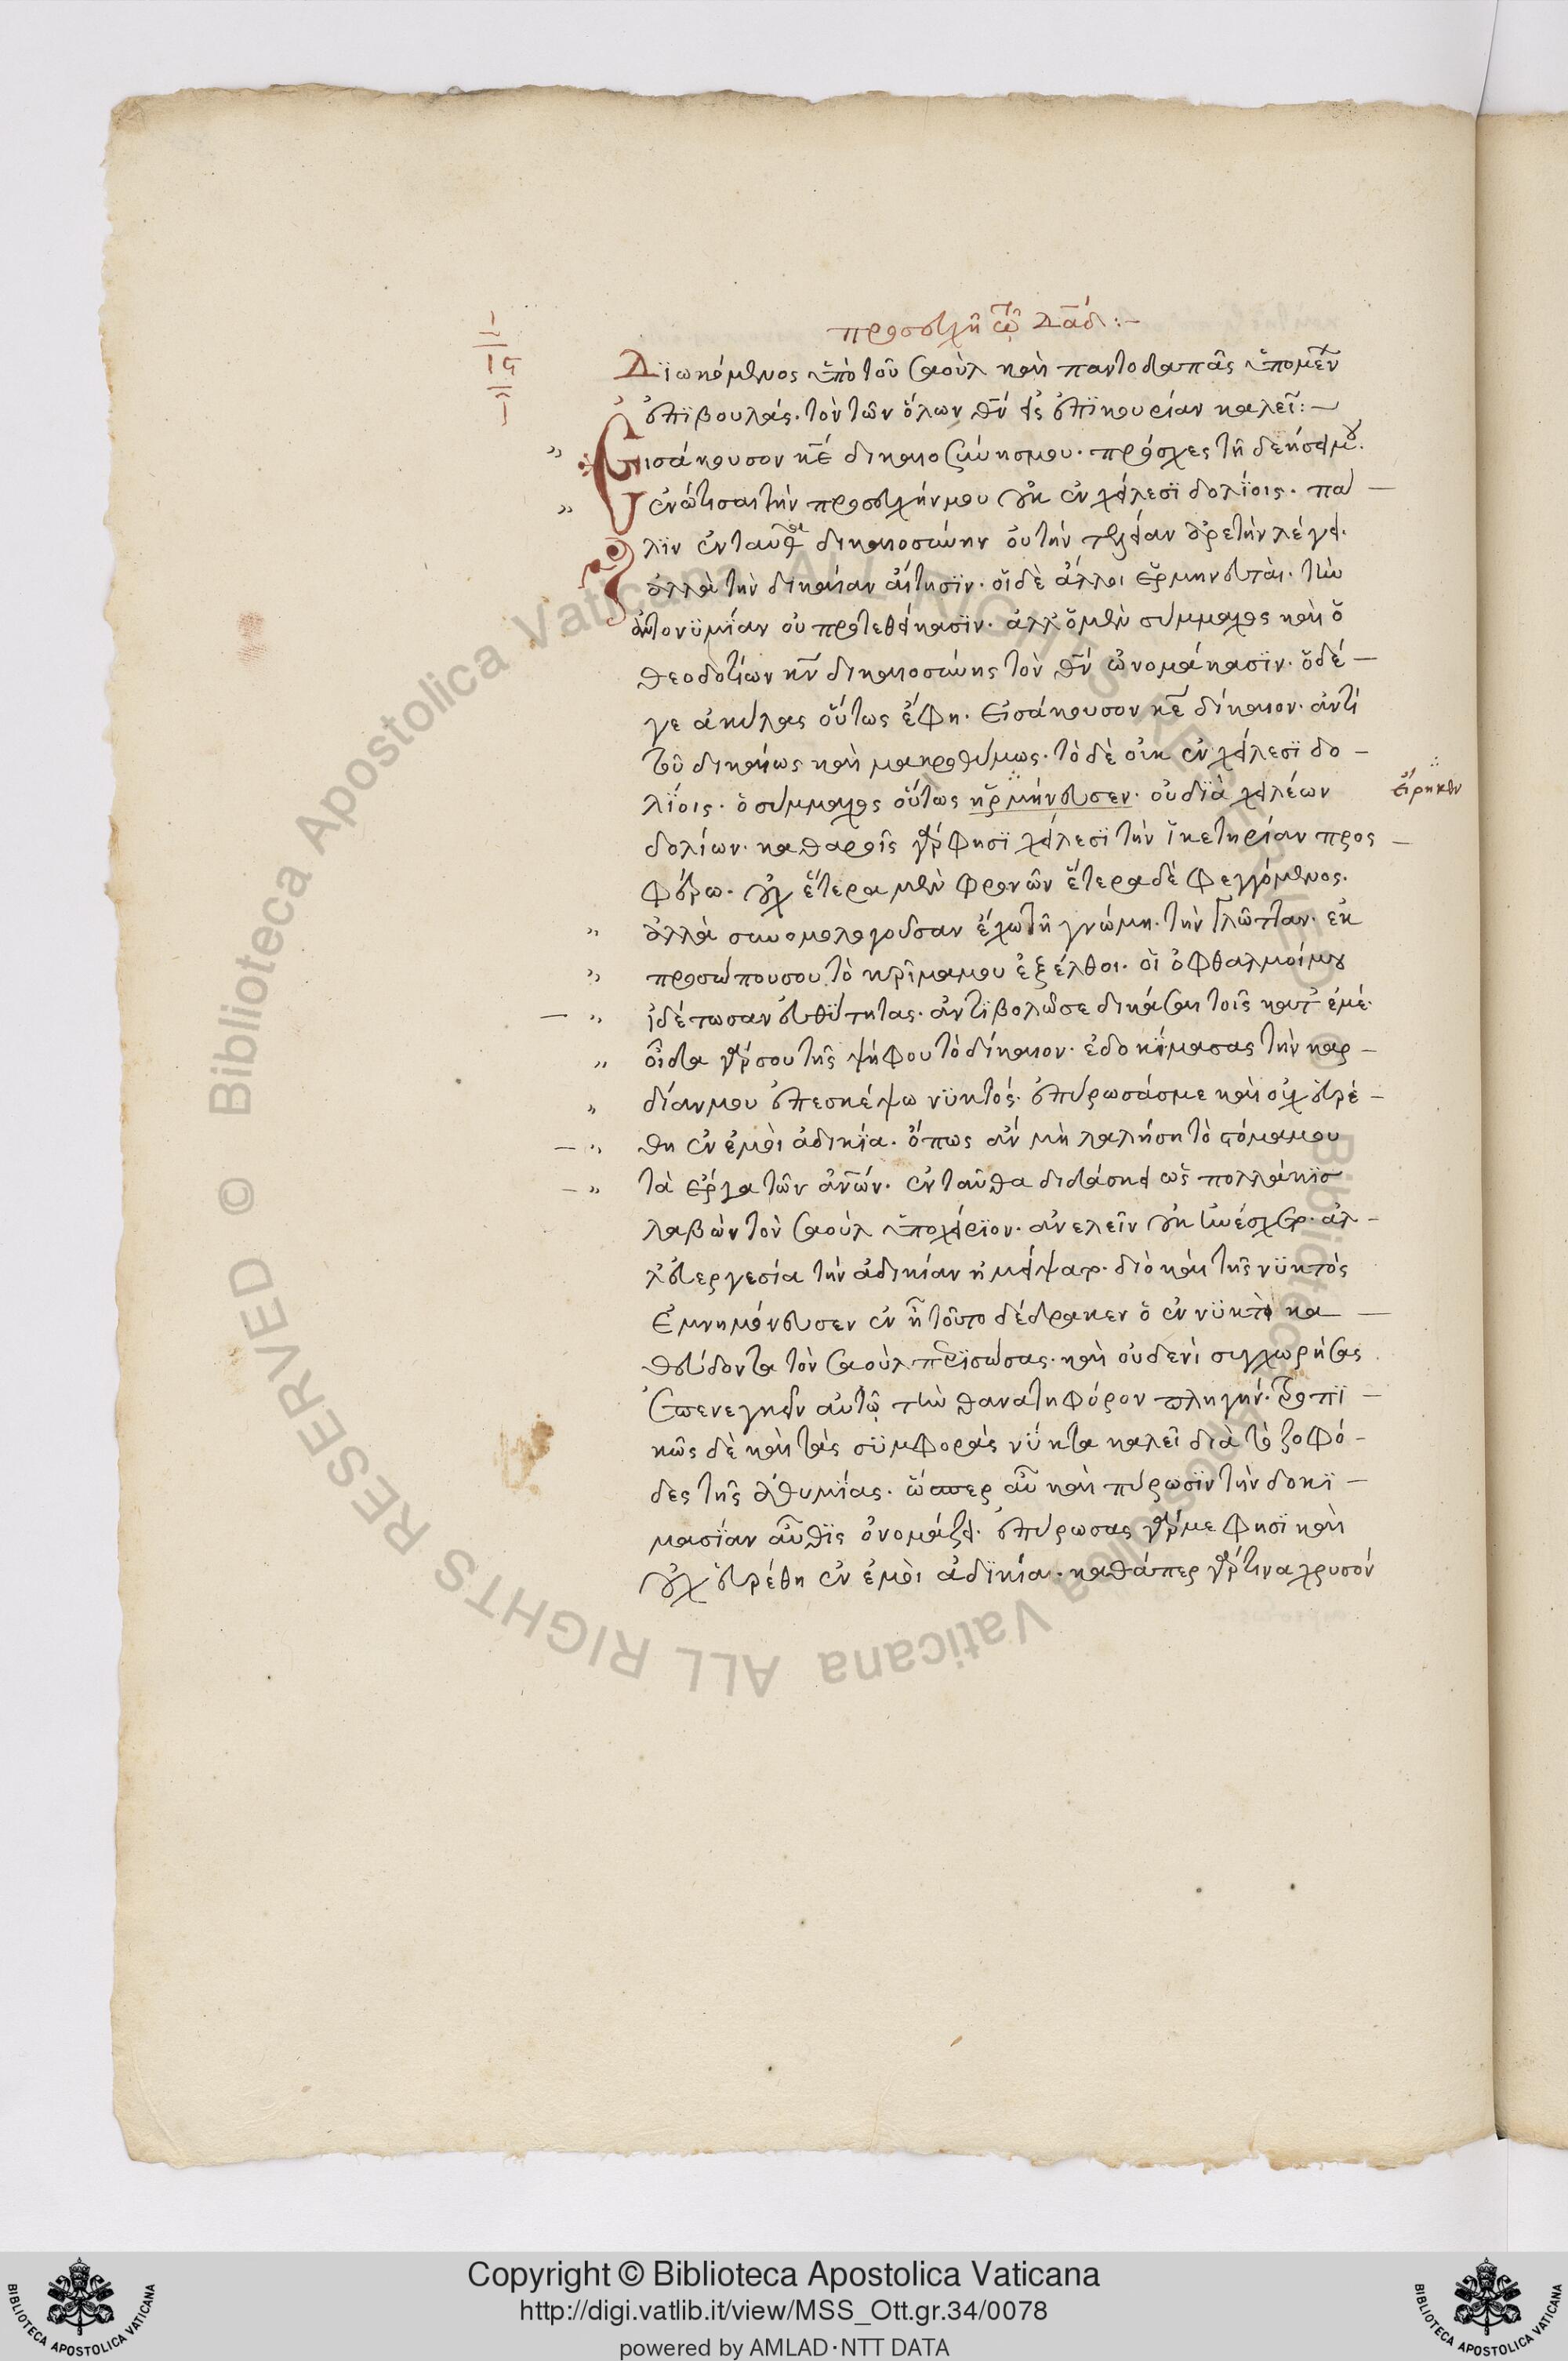 ις
προσευχὴ τῶ δαδ:-
Διωκόμενος ὑπὸ τοῦ σαοὺλ καὶ παντοδαπὰς ὑπομέν
ἐπιβουλάς. τὸν τῶν ὅλων θν εἰς ἐπικουρίαν καλεῖ:-
Εἰσάκουσον κε δικαιοσύνησμου. πρόσχες τῆ δεήσει μου.
ἐνώτισαι τὴν προσευχήν μου οὐκ ἐν χείλεσι δολίοις. πά
λιν ἐνταῦθα δικαιοσύνην οὐ τὴν τελείαν ἀρετὴν λέγει.
ἀλλὰ τὴν δικαίαν αἴτησιν. οἱ δὲ ἄλλοι ἑρμηνευταὶ. τὴν
ἀντονυμίαν οὐ προτεθείκασιν. ἀλλ' ὁ μὲν σύμμαχος καὶ ὁ
θεοδοτίων κν δικαιοσύνης τὸν θν ὠνομάκασιν. ὁ δέ
γε ἀκύλας οὕτως ἔφη. εἰσάκουσον κε δίκαιον. ἀντὶ
τοῦ δικαίως καὶ μακροθύμως. τὸ δὲ οὐκ ἐν χείλεσι δο
λίοις. ὁ σύμμαχος οὕτως ἡρμήνευσεν. οὐ διὰ χειλέων
εἴρηκεν
δολίων. καθαροῖς γάρ φησι χείλεσι τὴν ἱκετηρίαν προς
φέρω. οὐχ ἕτερα μὲν φρονῶν ἕτερα δὲ φεγγόμενος.
ἀλλὰ συνομολογοῦσαν ἔχω τῆ γνώμη. τὴν γλῶτταν. ἐκ
προσώπου σου τὸ κρῖμα μου ἐξέλθοι. οἱ ὀφθαλμοί μου
ἰδέτωσαν εὐθύτητας. ἀντιβολῶ σε δικάσαι τοῖς κατ' ἐμέ.
οἶδα γάρ σου τῆς ψήφου τὸ δίκαιον. ἐδοκίμασας τὴν καρ
δίαν μου ἐπεσκέψω νυκτός. ἐπύρωσάς με καὶ οὐχ εὑρέ
θη ἐν ἐμοὶ ἀδικία. ὅπως ἂν μὴ λαλήση τὸ στόμα μου
τὰ ἔργα τῶν ἀνων. ἐνταῦθα διδάσκει ὡς πολλάκις
λαβὼν τὸν σαοὺλ ὑποχείριον. ἀνελεῖν οὐκ ἠνέσχετο. ἀλ
λ' εὐεργεσία τὴν ἀδικίαν ἠμείψατο. διὸ καὶ τῆς νυκτὸς
ἐμνημόνευσεν ἐν ἧ τοῦτο δέδρακεν ὁ ἐν νυκτὶ κα
θεύδοντα τὸν σαοὺλ περισώσας. καὶ οὐδενὶ συγχωρήσας
ἐπενεγκεῖν αὐτῶ τὴν θανατηφόρον πληγήν. τροπι
κῶς δὲ καὶ τὰς συμφορὰς νύκτα καλεῖ διὰ τὸ ζοφό
δες τῆς ἀθυμίας. ὥσπερ αὖ καὶ πύρωσιν τὴν δοκι
μασίαν αὖθις ὀνομάζει. ἐπύρωσας γάρ με φησὶ καὶ
οὐχ εὑρέθη ἐν ἐμοὶ ἀδικία. καθάπερ γάρ τινα χρυσόν
© Biblioteca Apostolica Vaticana ALL RIGHTS RESERVED
Copyright © Biblioteca Apostolica Vaticana
http://digi.vatlib.it/view/MSS_Ott.gr.34/0078
powered by AMLAD·NTT DATA
BIBLIOTECA APOSTOLICA VATICANA
BIBLIOTECA APOSTOLICA VATICANA